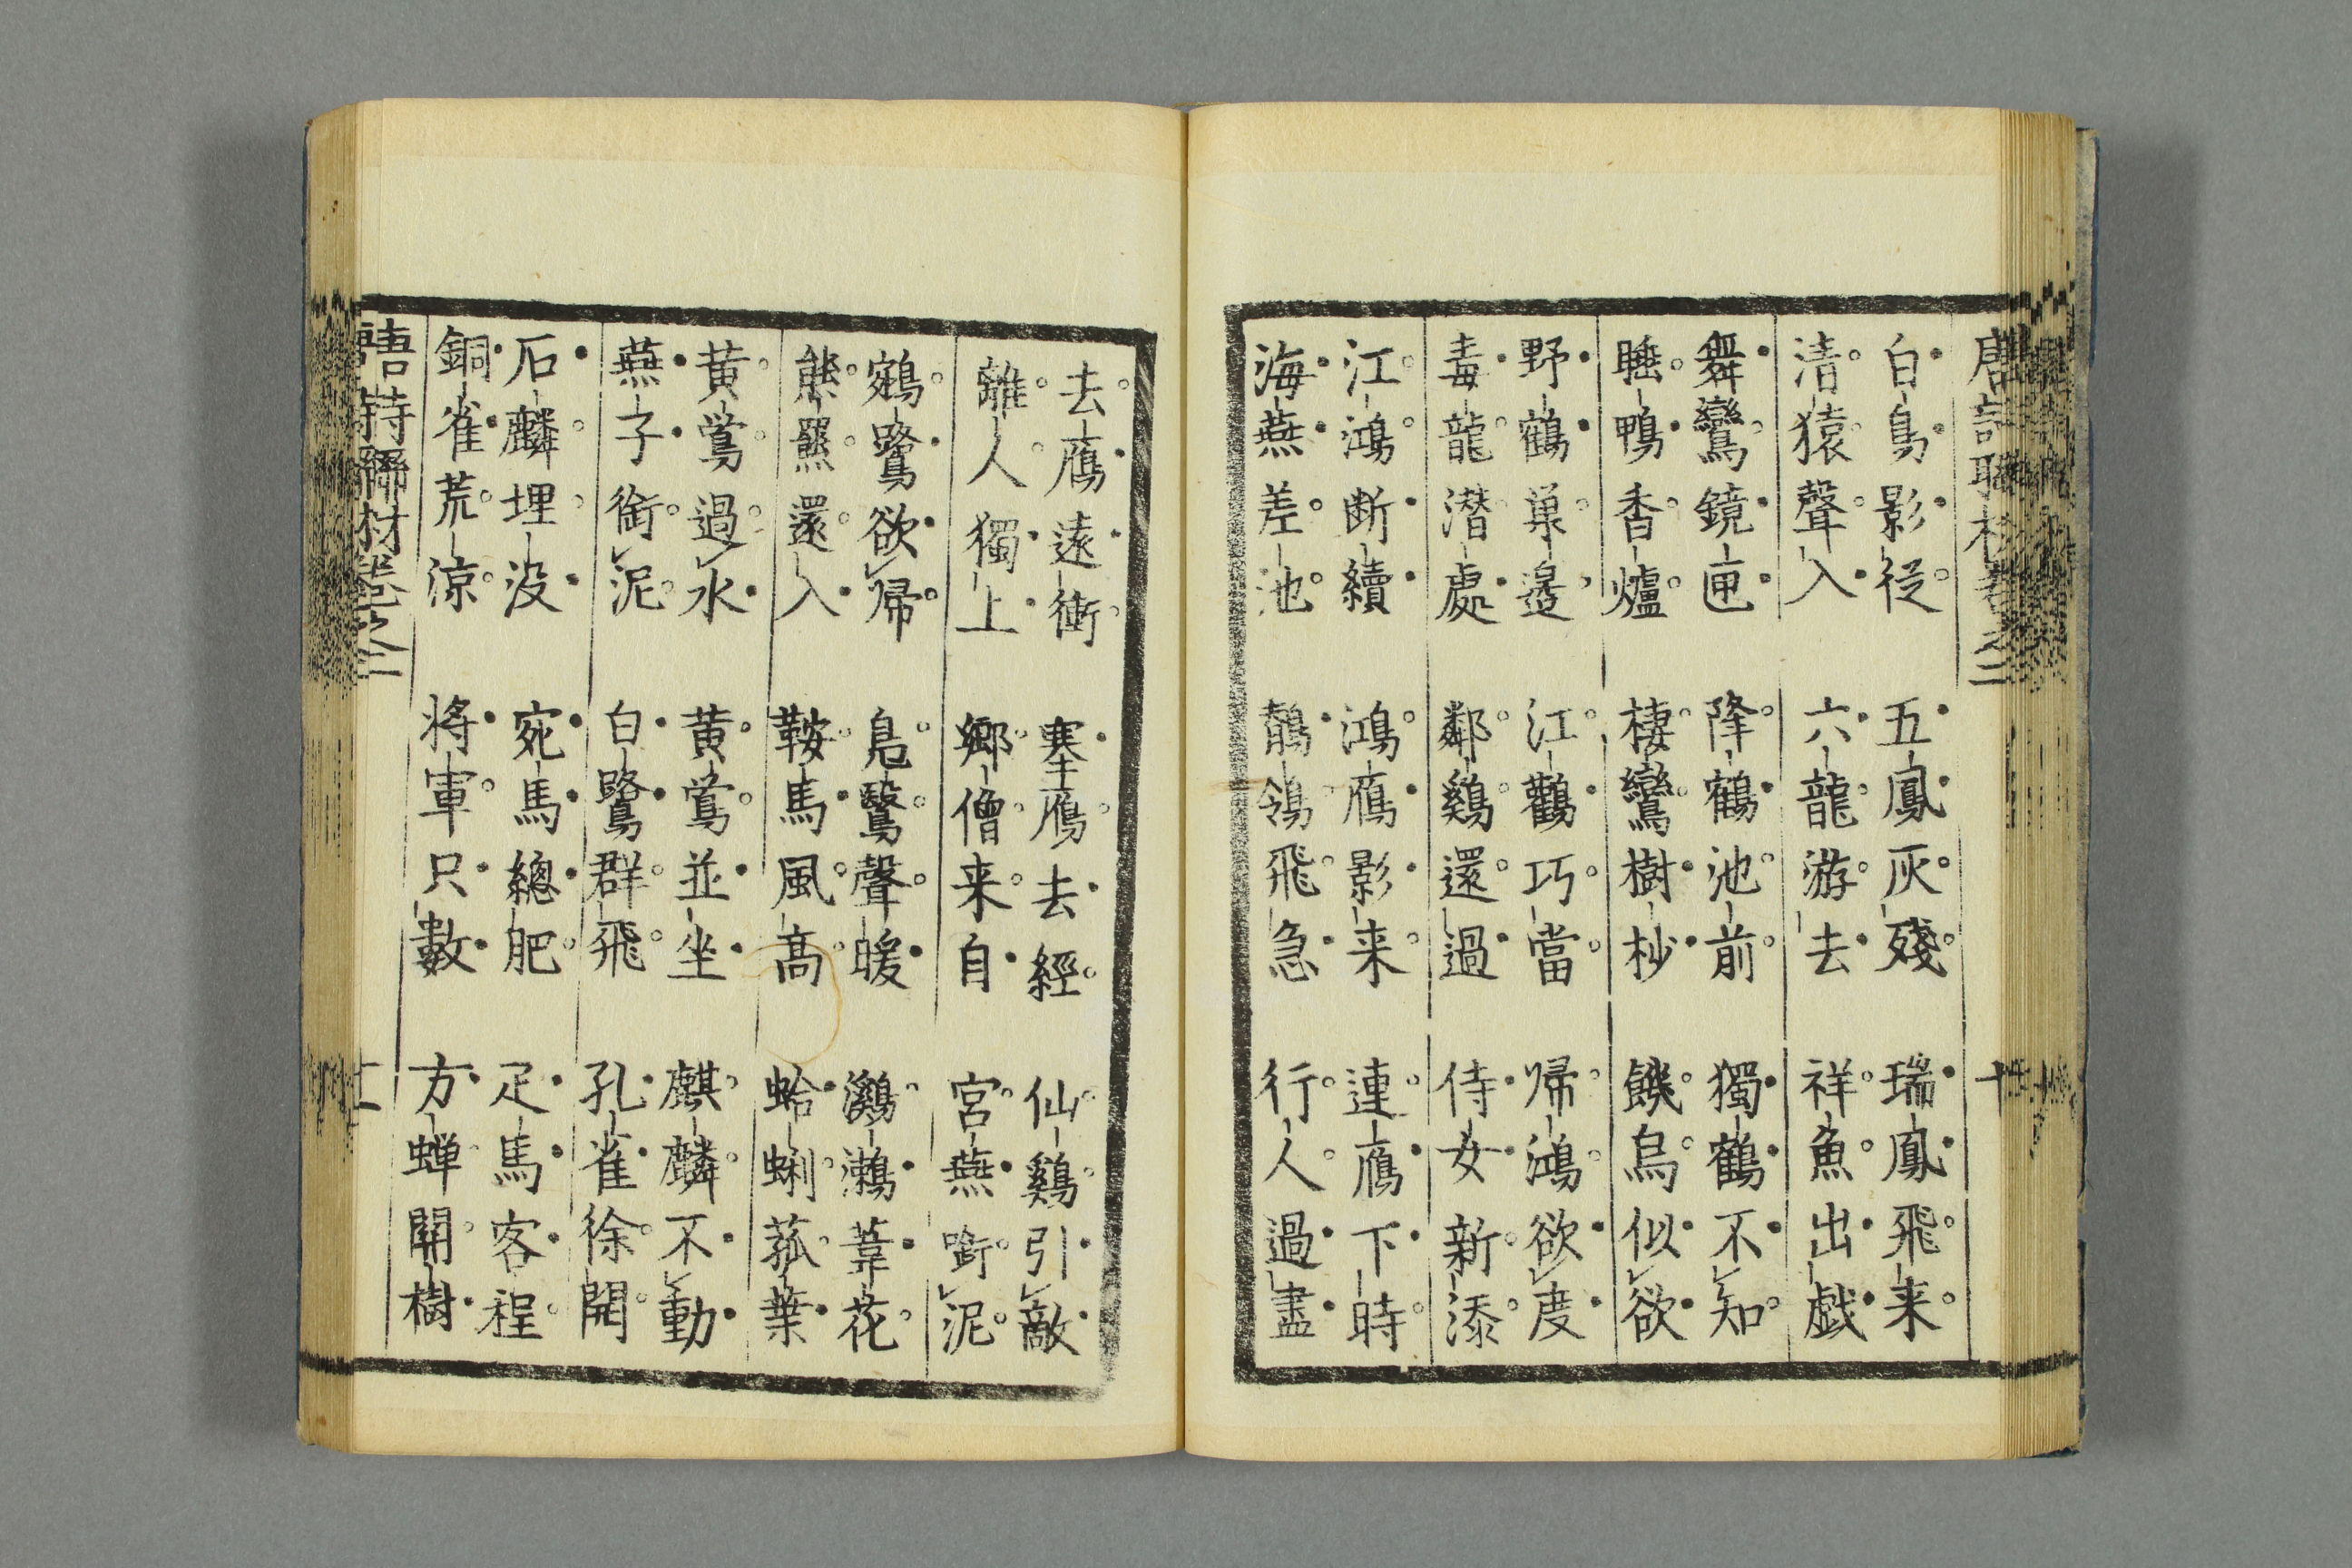 唐詩聯材巻之二 十
白鳥影従 五鳳灰殘 瑞鳳飛来
清猿聲入 六龍游去 祥魚出戯
舞鸞鏡匣 降鶴池前 獨鶴不知
睡鴨香爐 棲鸞樹杪 饑烏似欲
野鶴巣邉 江鸛巧當 帰鴻欲度
毒龍潜處 鄰鷄還過 侍女新添
江鴻断續 鴻鴈影来 連鴈下時
海燕差池 鶺鴒飛急 行人過盡
去鴈遠衝 塞鴈去經 仙鷄引敵
離人獨上 郷僧来自 宮燕銜泥
鵷鷺欲帰 鳧鷖聲暖 鸂鶒葦花
熊羆還入 鞍馬風高 蛤蜊菰葉
黄鶯過水 黄鶯並坐 麒麟不動
燕子銜泥 白鷺群飛 孔雀徐開
石麟埋没 宛馬總肥 疋馬客程
銅雀荒涼 将軍只數 方蝉開樹
唐詩聯材巻之二